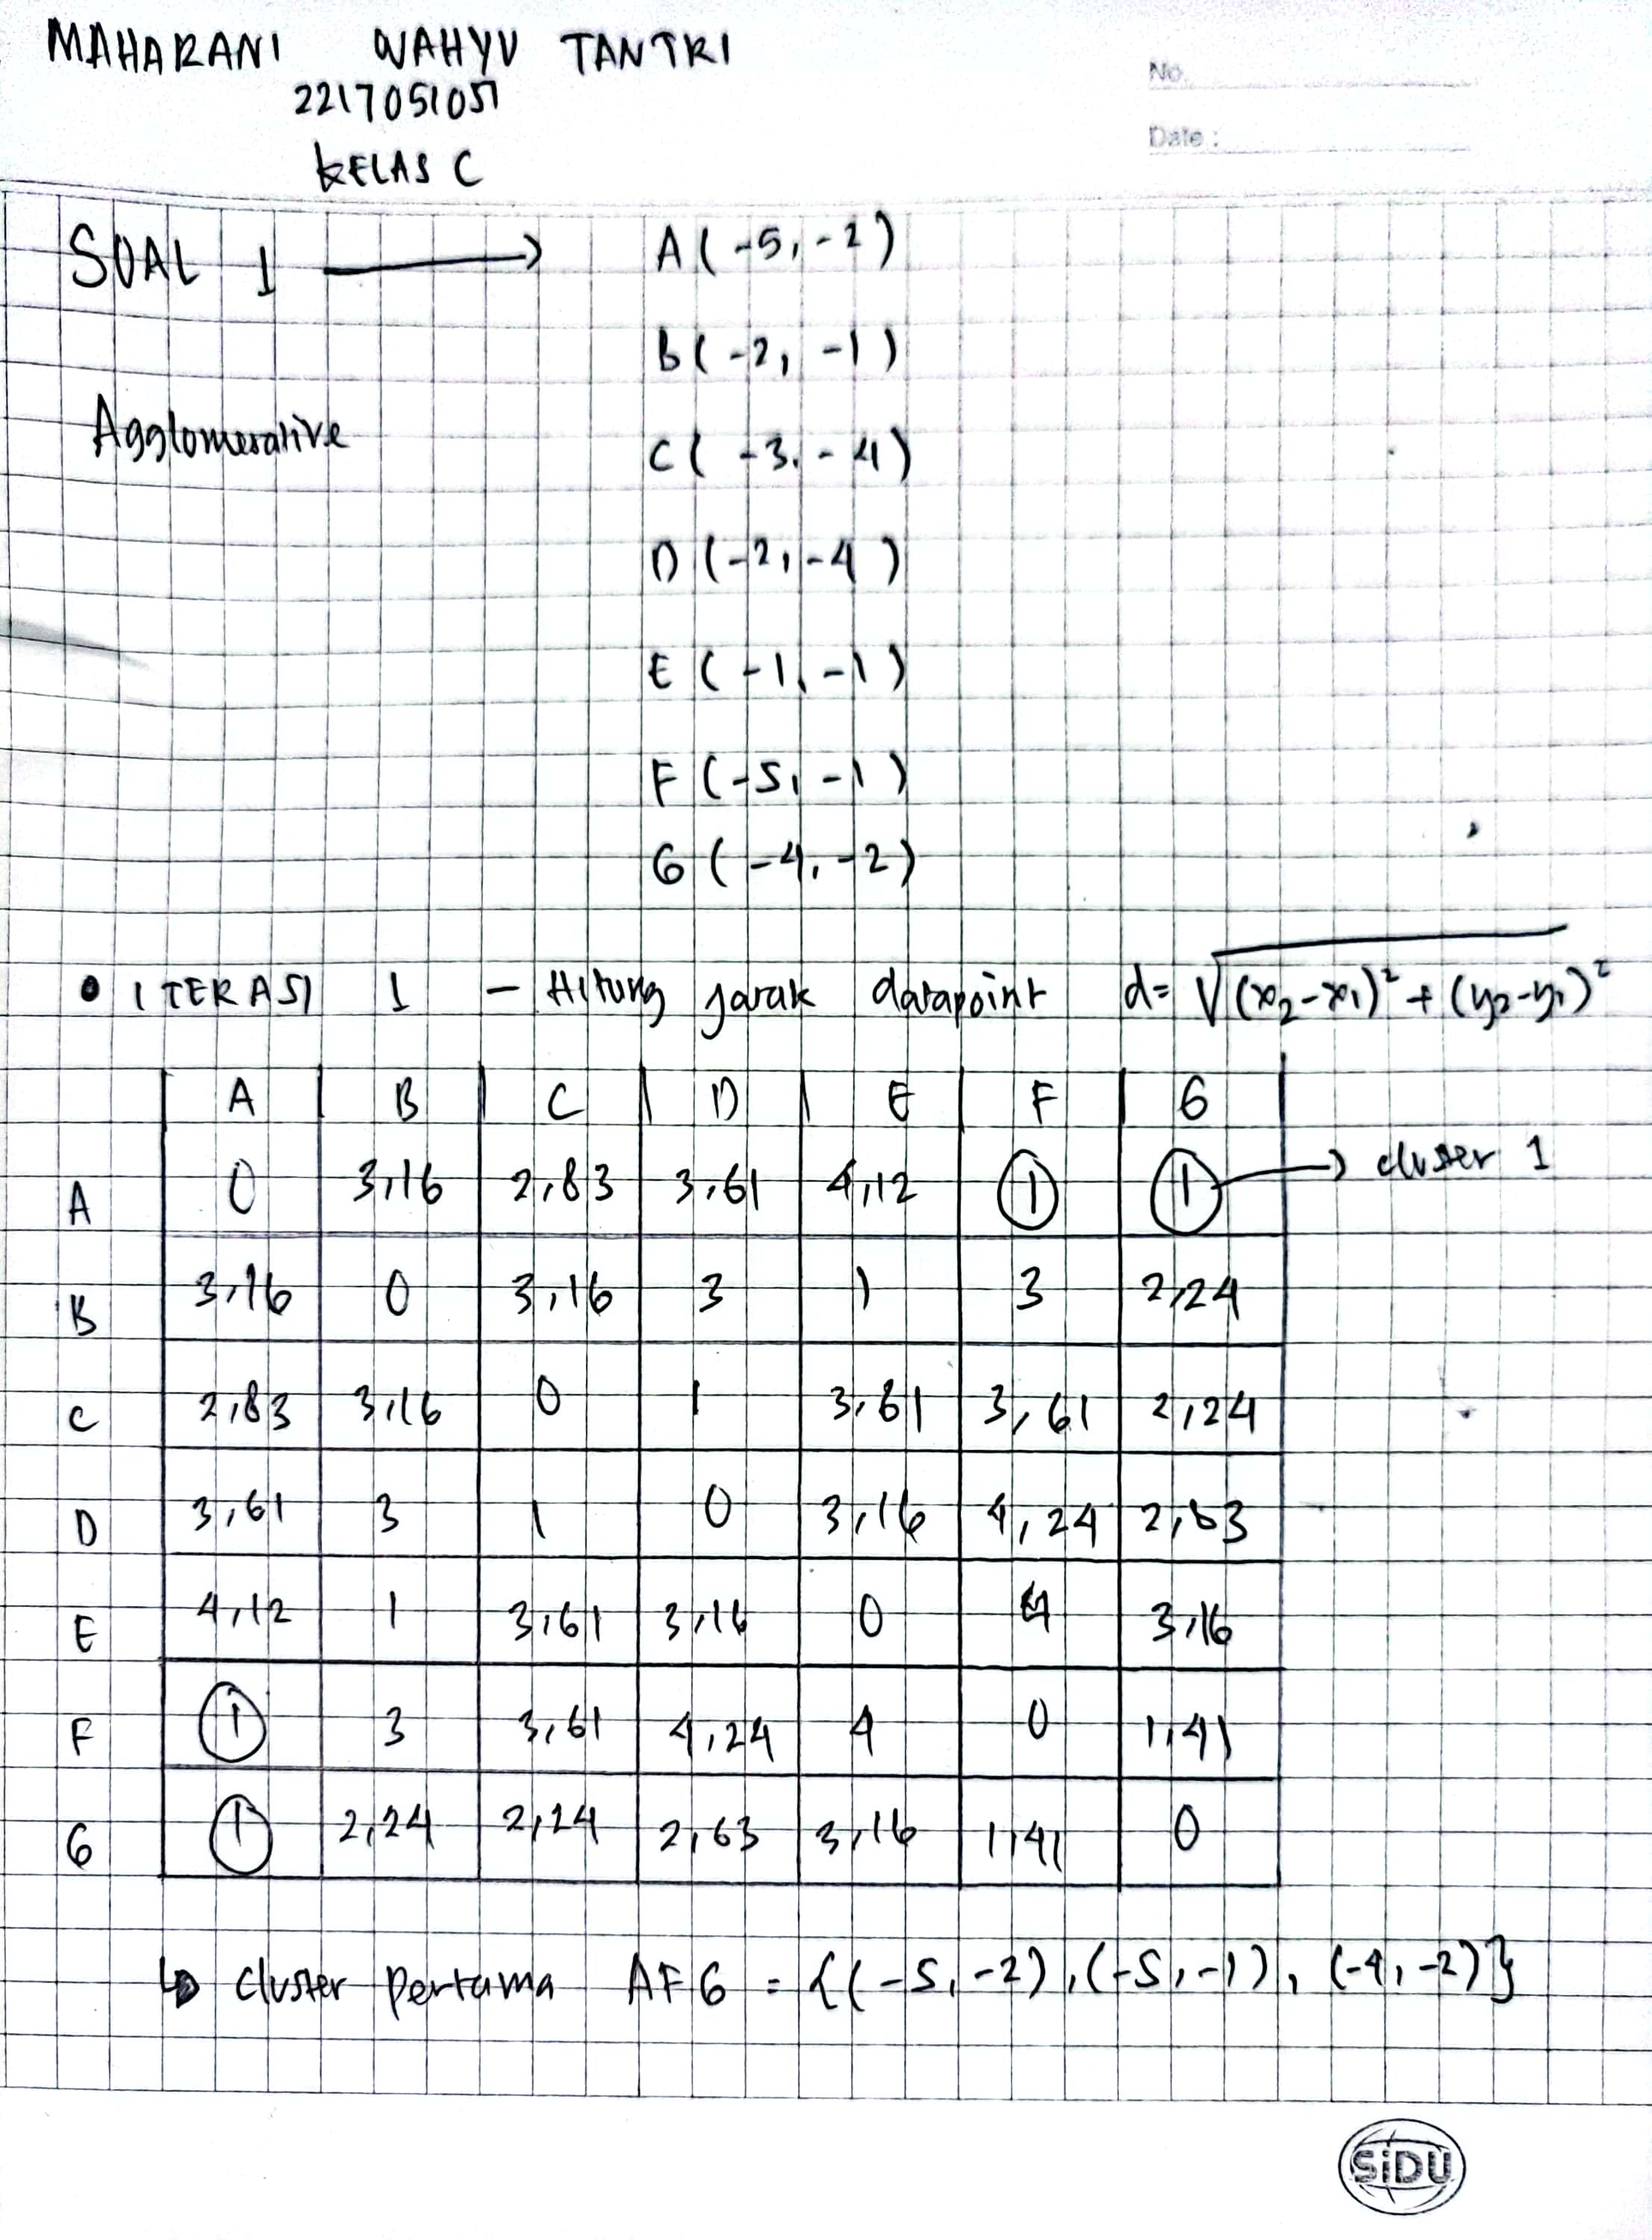 MAHARANI WAHYU TANTRI
2217051051
KELAS C
No.
Date :
SOAL 1 → A(-5,-2)
B(-2, -1)
Agglomerative
C(-3,-4)
D(-2,-4)
E(-1,-1)
F(-5,-1)
G(-4,-2)
• ITERASI 1 - Hitung jarak datapoint d= √(x₂-x₁)² + (y₂-y₁)²
A B C D E F G
A 0 3,16 2,83 3,61 4,12 1 1 → cluster 1
B 3,16 0 3,16 3 1 3 2,24
C 2,83 3,16 0 1 3,61 3,61 2,24
D 3,61 3 1 0 3,16 4,24 2,83
E 4,12 1 3,61 3,16 0 4 3,16
F 1 3 3,61 4,24 4 0 1,41
G 1 2,24 2,24 2,63 3,16 1,41 0
↳ cluster pertama AFG = {(-5,-2),(-5,-1),(-4,-2)}
SiDU